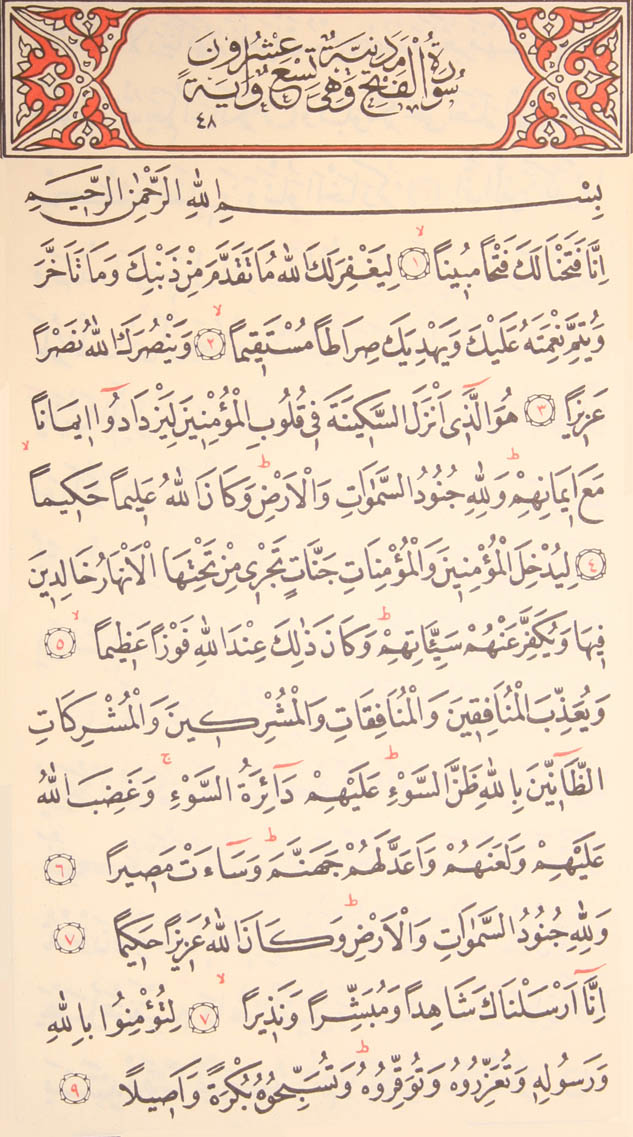 سُورَةُ الْفَتْحِ مَدَنِيَّةٌ وَهِىَ تِسْعٌ وَعِشْرُونَ اٰيَةً
٤٨
بِسْمِ اللّٰهِ الرَّحْمٰنِ الرَّحِيمِ
اِنَّا فَتَحْنَا لَكَ فَتْحًا مُبِينًاۙ ﴿١﴾ لِيَغْفِرَ لَكَ اللّٰهُ مَا تَقَدَّمَ مِنْ ذَنْبِكَ وَمَا تَاَخَّرَ
وَيُتِمَّ نِعْمَتَهُ عَلَيْكَ وَيَهْدِيَكَ صِرَاطًا مُسْتَقِيمًاۙ ﴿٢﴾ وَيَنْصُرَكَ اللّٰهُ نَصْرًا
عَزِيزًا ﴿٣﴾ هُوَ الَّذٓى اَنْزَلَ السَّكِينَةَ فِى قُلُوبِ الْمُؤْمِنِينَ لِيَزْدَادُٓوا اِيمَانًا
مَعَ اِيمَانِهِمْۜ وَلِلّٰهِ جُنُودُ السَّمٰوَاتِ وَالْاَرْضِۜ وَكَانَ اللّٰهُ عَلِيمًا حَكِيمًاۙ
﴿٤﴾ لِيُدْخِلَ الْمُؤْمِنِينَ وَالْمُؤْمِنَاتِ جَنَّاتٍ تَجْرِى مِنْ تَحْتِهَا الْاَنْهَارُ خَالِدِينَ
فِيهَا وَيُكَفِّرَ عَنْهُمْ سَيِّـَٔاتِهِمْۜ وَكَانَ ذٰلِكَ عِنْدَ اللّٰهِ فَوْزًا عَظِيمًاۙ ﴿٥﴾
وَيُعَذِّبَ الْمُنَافِقِينَ وَالْمُنَافِقَاتِ وَالْمُشْرِكِينَ وَالْمُشْرِكَاتِ
الظَّٓانِّينَ بِاللّٰهِ ظَنَّ السَّوْءِۜ عَلَيْهِمْ دَٓائِرَةُ السَّوْءِۚ وَغَضِبَ اللّٰهُ
عَلَيْهِمْ وَلَعَنَهُمْ وَاَعَدَّ لَهُمْ جَهَنَّمَۜ وَسَٓاءَتْ مَصِيرًا ﴿٦﴾
وَلِلّٰهِ جُنُودُ السَّمٰوَاتِ وَالْاَرْضِۜ وَكَانَ اللّٰهُ عَزِيزًا حَكِيمًا ﴿٧﴾
اِنَّٓا اَرْسَلْنَاكَ شَاهِدًا وَمُبَشِّرًا وَنَذِيرًاۙ ﴿٧﴾ لِتُؤْمِنُوا بِاللّٰهِ
وَرَسُولِهِ وَتُعَزِّرُوهُ وَتُوَقِّرُوهُۜ وَتُسَبِّحُوهُ بُكْرَةً وَاَصِيلًا ﴿٩﴾